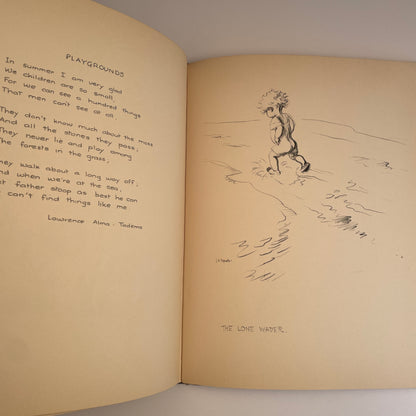 PLAYGROUNDS
In summer I am very glad
We children are so small,
For we can see a hundred things
That men can't see at all.
They don't know much about the moss
And all the stones they pass;
They never lie and play among
The forests in the grass;
They walk about a long way off;
And when we're at the sea,
father stoop as best he can
can't find things like me.
Lawrence Alma-Tadema
THE LONE WADER.